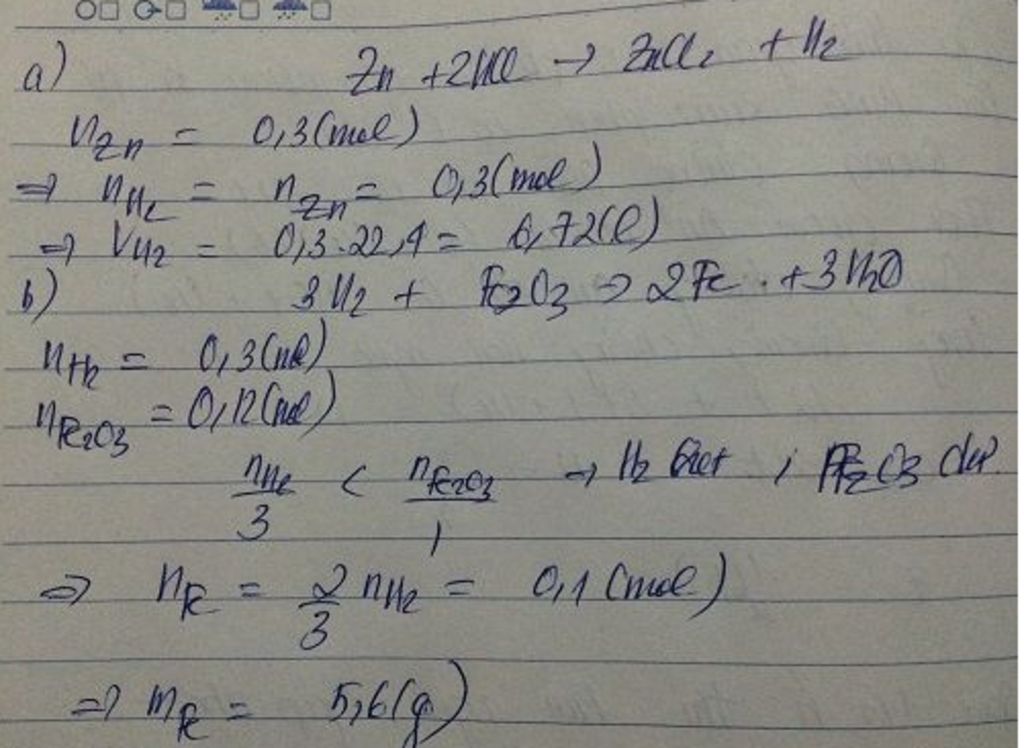 a) Zn + 2HCl → ZnCl₂ + H₂
n_Zn = 0,3 (mol)
⇒ n_H₂ = n_Zn = 0,3 (mol)
⇒ V_H₂ = 0,3.22,4 = 6,72 (l)
b) 3H₂ + Fe₂O₃ → 2Fe + 3H₂O
n_H₂ = 0,3 (mol)
n_Fe₂O₃ = 0,12 (mol)
n_H₂/3 < n_Fe₂O₃/1 → H₂ hết ; Fe₂O₃ dư.
⇒ n_Fe = 2/3 n_H₂ = 0,1 (mol)
⇒ m_Fe = 5,6 (g)